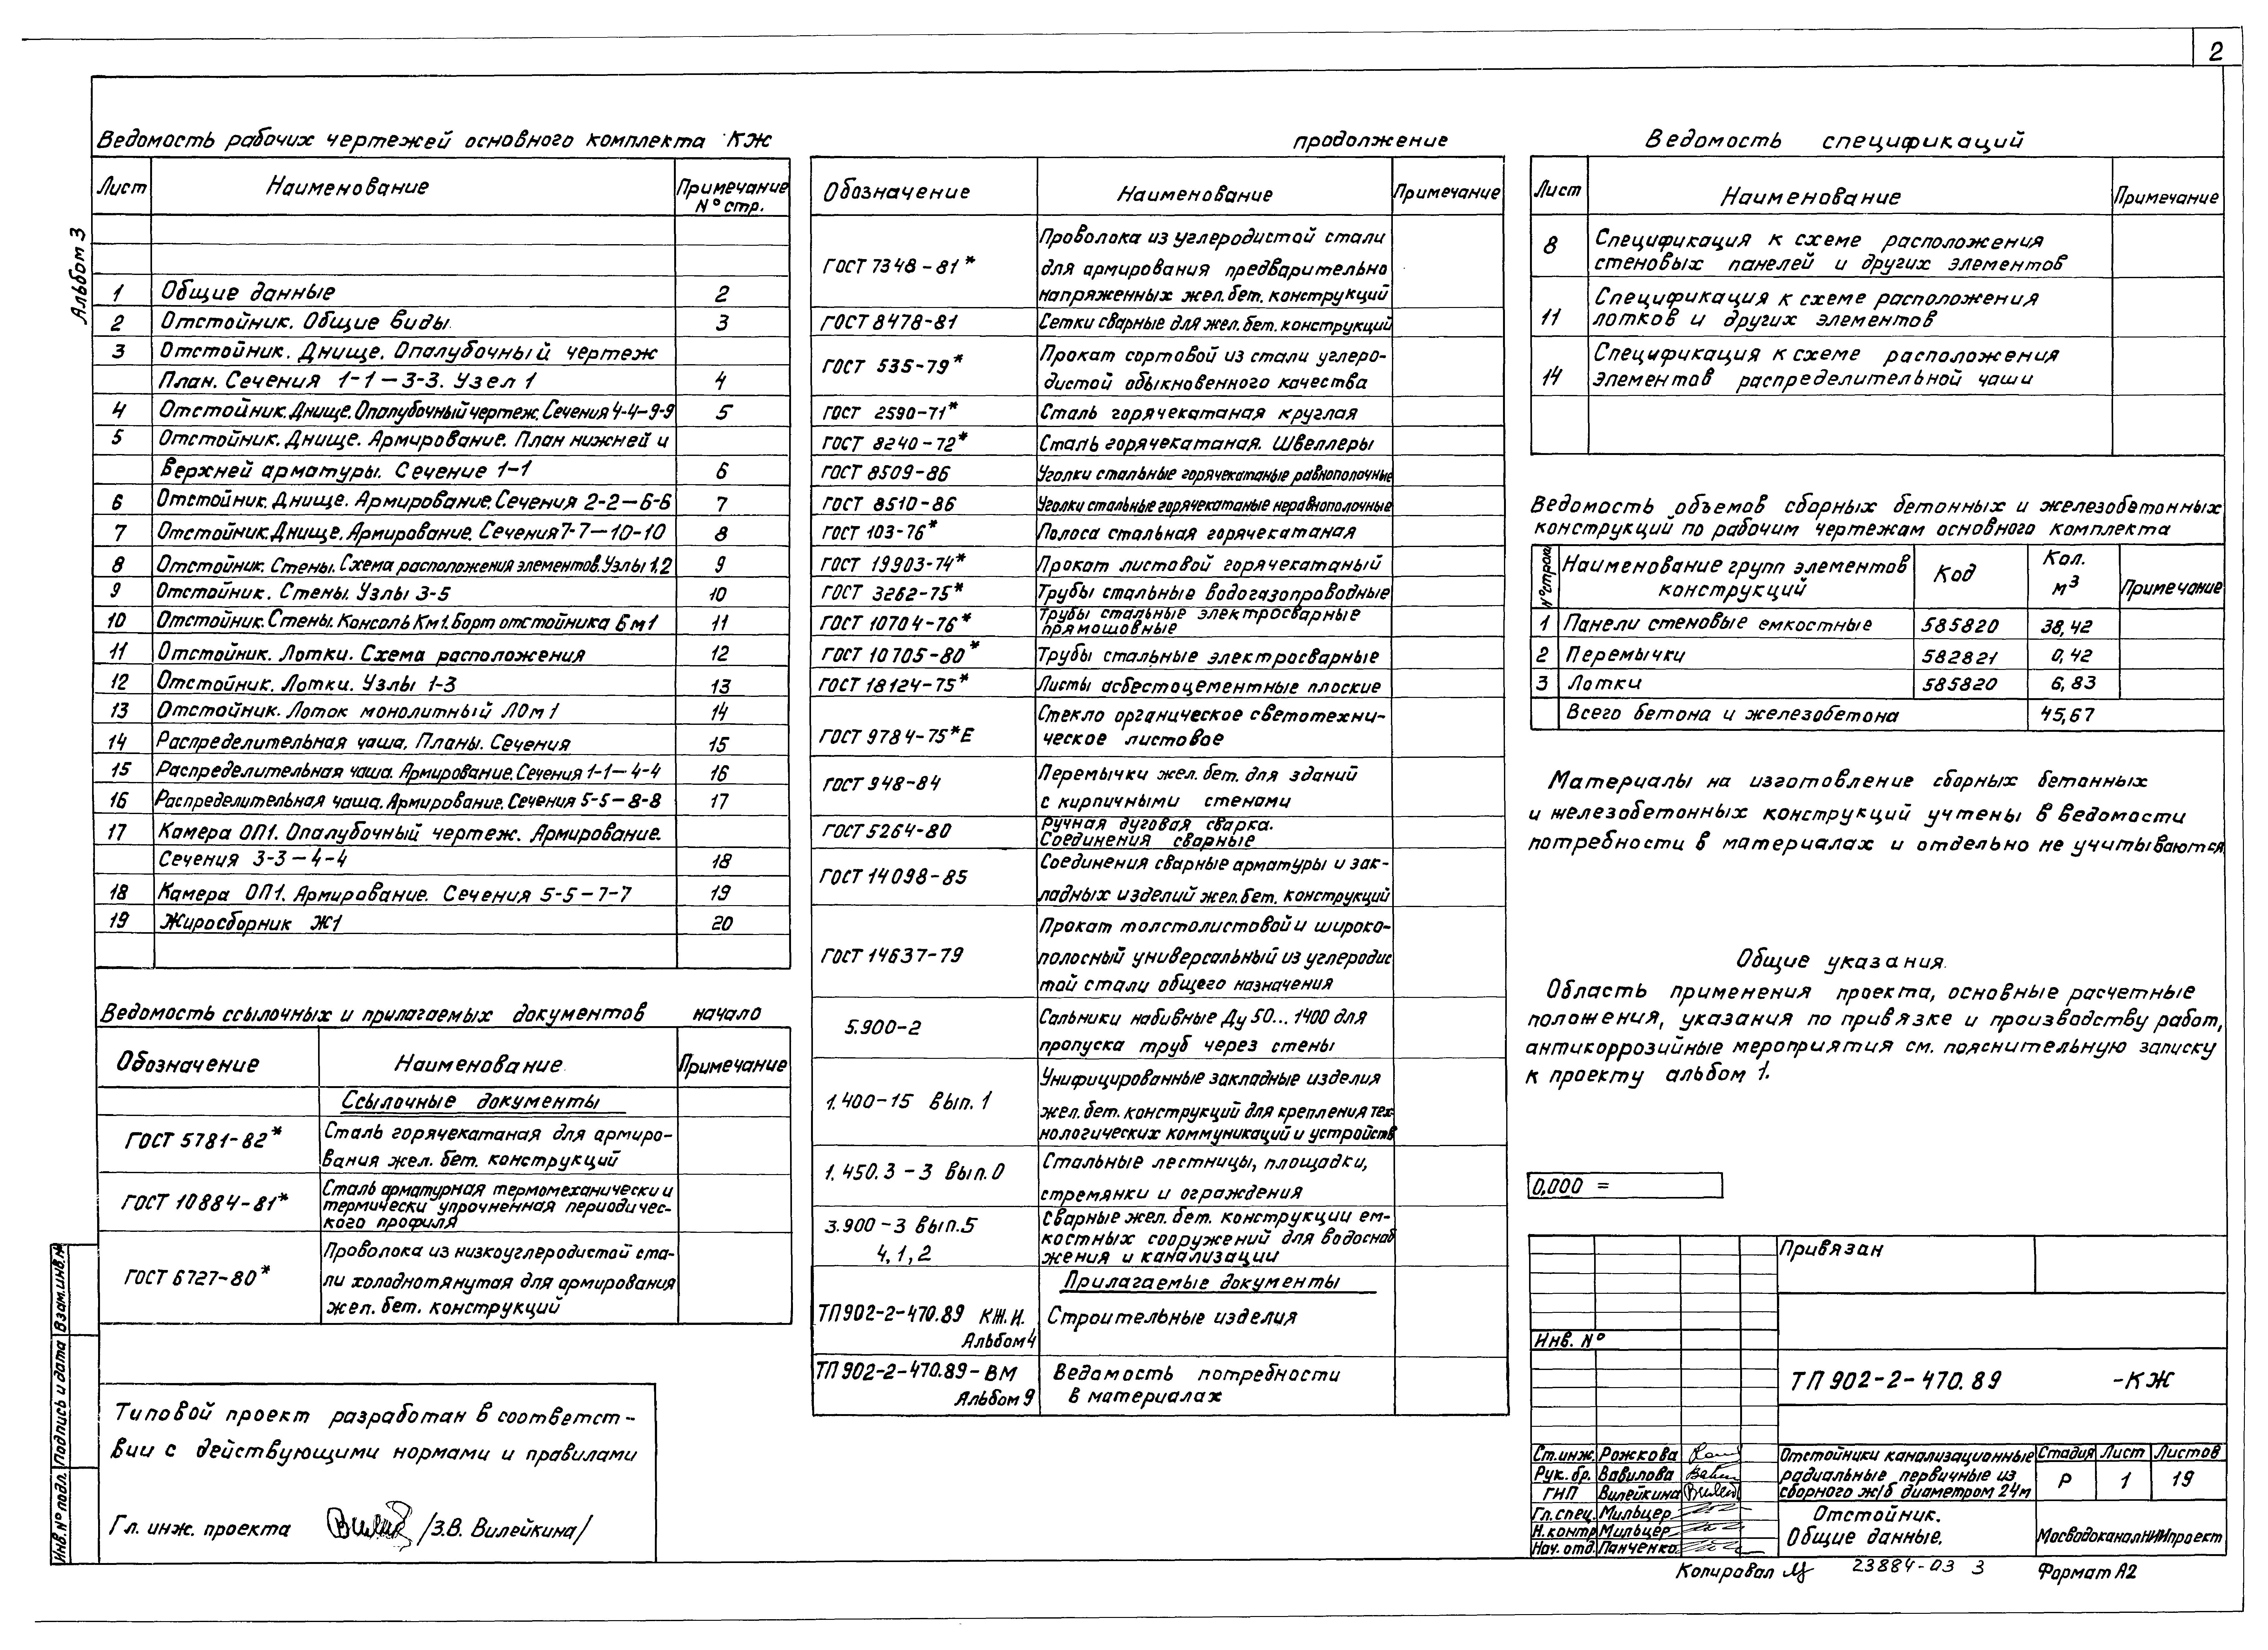 2
Альбом 3
Ведомость рабочих чертежей основного комплекта КЖ
Лист Наименование Примечание № стр.
1 Общие данные 2
2 Отстойник. Общие виды. 3
3 Отстойник. Днище. Опалубочный чертеж
План. Сечения 1-1 — 3-3. Узел 1 4
4 Отстойник. Днище. Опалубочный чертеж. Сечения 4-4 — 9-9 5
5 Отстойник. Днище. Армирование. План нижней и
верхней арматуры. Сечение 1-1 6
6 Отстойник. Днище. Армирование. Сечения 2-2 — 6-6 7
7 Отстойник. Днище. Армирование. Сечения 7-7 — 10-10 8
8 Отстойник. Стены. Схема расположения элементов. Узлы 1,2 9
9 Отстойник. Стены. Узлы 3-5 10
10 Отстойник. Стены. Консоль Км1. Борт отстойника Бм1 11
11 Отстойник. Лотки. Схема расположения 12
12 Отстойник. Лотки. Узлы 1-3 13
13 Отстойник. Лоток монолитный ЛОм1 14
14 Распределительная чаша. Планы. Сечения 15
15 Распределительная чаша. Армирование. Сечения 1-1 — 4-4 16
16 Распределительная чаша. Армирование. Сечения 5-5 — 8-8 17
17 Камера ОП1. Опалубочный чертеж. Армирование.
Сечения 3-3 — 4-4 18
18 Камера ОП1. Армирование. Сечения 5-5 — 7-7 19
19 Жиросборник Ж1 20
Ведомость ссылочных и прилагаемых документов начало
Обозначение Наименование Примечание
Ссылочные документы
ГОСТ 5781-82* Сталь горячекатаная для армиро-
вания жел. бет. конструкций
ГОСТ 10884-81* Сталь арматурная термомеханически и
термически упрочненная периодичес-
кого профиля
ГОСТ 6727-80* Проволока из низкоуглеродистой ста-
ли холоднотянутая для армирования
жел. бет. конструкций
Типовой проект разработан в соответст-
вии с действующими нормами и правилами
Гл. инж. проекта /З.В. Вилейкина/
Взам. инв. №
Подпись и дата
Инв. № подл.
продолжение
Обозначение Наименование Примечание
ГОСТ 7348-81* Проволока из углеродистой стали
для армирования предварительно
напряженных жел. бет. конструкций
ГОСТ 8478-81 Сетки сварные для жел. бет. конструкций
ГОСТ 535-79* Прокат сортовой из стали углеро-
дистой обыкновенного качества
ГОСТ 2590-71* Сталь горячекатаная круглая
ГОСТ 8240-72* Сталь горячекатаная. Швеллеры
ГОСТ 8509-86 Уголки стальные горячекатаные равнополочные
ГОСТ 8510-86 Уголки стальные горячекатаные неравнополочные
ГОСТ 103-76* Полоса стальная горячекатаная
ГОСТ 19903-74* Прокат листовой горячекатаный
ГОСТ 3262-75* Трубы стальные водогазопроводные
ГОСТ 10704-76* Трубы стальные электросварные
прямошовные
ГОСТ 10705-80* Трубы стальные электросварные
ГОСТ 18124-75* Листы асбестоцементные плоские
ГОСТ 9784-75*Е Стекло органическое светотехни-
ческое листовое
ГОСТ 948-84 Перемычки жел. бет. для зданий
с кирпичными стенами
ГОСТ 5264-80 Ручная дуговая сварка.
Соединения сварные
ГОСТ 14098-85 Соединения сварные арматуры и зак-
ладных изделий жел. бет. конструкций
ГОСТ 14637-79 Прокат толстолистовой и широко-
полосный универсальный из углеродис
той стали общего назначения
5.900-2 Сальники набивные Ду 50... 1400 для
пропуска труб через стены
1.400-15 вып. 1 Унифицированные закладные изделия
жел. бет. конструкций для крепления тех-
нологических коммуникаций и устройств
1.450.3-3 вып. 0 Стальные лестницы, площадки,
стремянки и ограждения
3.900-3 вып. 5 Сварные жел. бет. конструкции ем-
костных сооружений для водоснаб
4,1,2 жения и канализации
Прилагаемые документы
ТП 902-2-470.89 КЖ.И. Строительные изделия
Альбом 4
ТП 902-2-470.89-ВМ Ведомость потребности
Альбом 9 в материалах
Ведомость спецификаций
Лист Наименование Примечание
8 Спецификация к схеме расположения
стеновых панелей и других элементов
Спецификация к схеме расположения
11 лотков и других элементов
Спецификация к схеме расположения
14 элементов распределительной чаши
Ведомость объемов сборных бетонных и железобетонных
конструкций по рабочим чертежам основного комплекта
№ строки Наименование групп элементов конструкций Код Кол. м³ Примечание
1 Панели стеновые емкостные 585820 38,42
2 Перемычки 582821 0,42
3 Лотки 585820 6,83
Всего бетона и железобетона 45,67
Материалы на изготовление сборных бетонных
и железобетонных конструкций учтены в ведомости
потребности в материалах и отдельно не учитываются
Общие указания.
Область применения проекта, основные расчетные
положения, указания по привязке и производству работ,
антикоррозийные мероприятия см. пояснительную записку
к проекту альбом 1.
0,000 =
Привязан
Инв. №
ТП 902-2-470.89 -КЖ
Ст.инж. Рожкова
Рук. бр. Вавилова
ГИП Вилейкина
Гл.спец. Мильцер
Н.контр Мильцер
Нач. отд. Панченко
Отстойники канализационные
радиальные первичные из
сборного ж/б диаметром 24м
Стадия Лист Листов
Р 1 19
Отстойник.
Общие данные.
МосводоканалНИИпроект
Копировал 23884-03 3 Формат А2